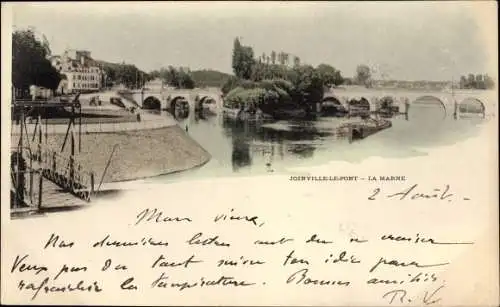 JOINVILLE-LE-PONT — LA MARNE
2 Août.
Mon vieux,
Nos dernières lettres ont dû se croiser
Veux pas du tout suivre ton idée pour
rafraîchir la température. Bonnes amitiés
R. V.